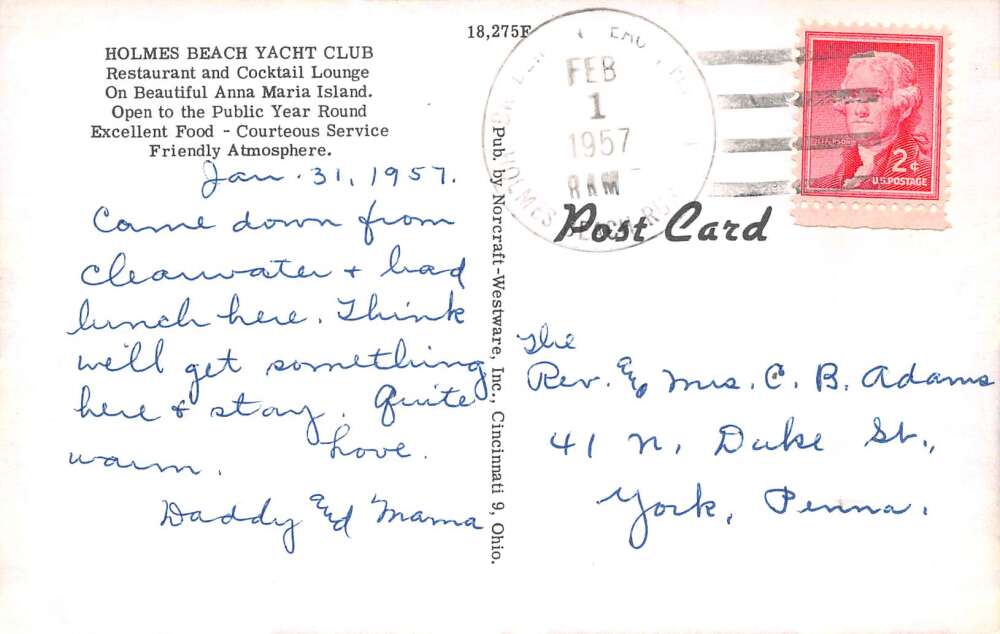 HOLMES BEACH YACHT CLUB
Restaurant and Cocktail Lounge
On Beautiful Anna Maria Island.
Open to the Public Year Round
Excellent Food - Courteous Service
Friendly Atmosphere.
Jan. 31, 1957.
Came down from
Clearwater + had
lunch here. Think
we'll get something
here + stay. Quite
warm. Love.
Daddy and Mama
18,275F
Pub. by Norcraft-Westware, Inc., Cincinnati 9, Ohio.
FEB
1
1957
8 AM
HOLMES BEACH
Post Card
JEFFERSON
2¢
U.S. POSTAGE
The
Rev. and Mrs. C. B. Adams
41 N. Duke St.,
York, Penna.